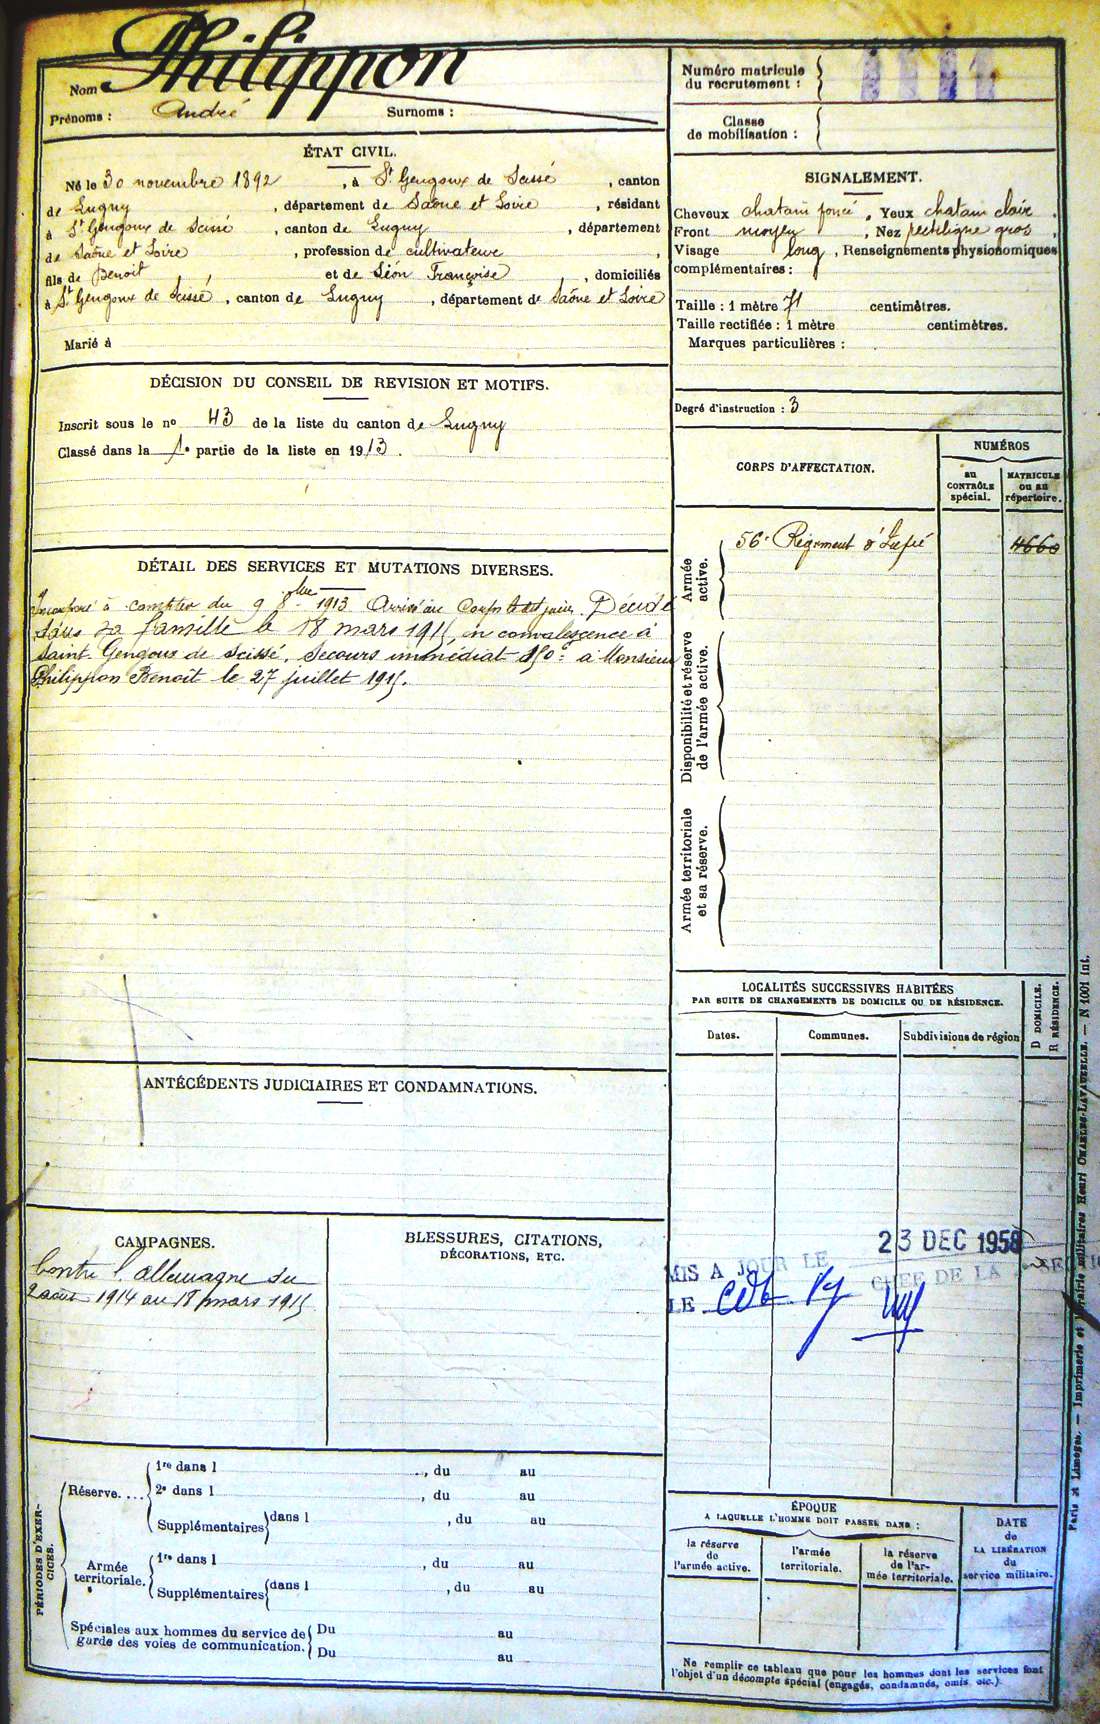 Nom Philippon
Prénoms : André Surnoms :
Numéro matricule
du recrutement : 1111
Classe
de mobilisation :
ÉTAT CIVIL.
Né le 30 novembre 1892, à St Gengoux de Scissé, canton
de Lugny, département de Saône et Loire, résidant
à St Gengoux de Scissé, canton de Lugny, département
de Saône et Loire, profession de cultivateur,
fils de Benoit, et de Léon Françoise, domiciliés
à St Gengoux de Scissé, canton de Lugny, département de Saône et Loire
Marié à
SIGNALEMENT.
Cheveux chatain foncé, Yeux chatain clair,
Front moyen, Nez rectiligne gros,
Visage long, Renseignements physionomiques
complémentaires :
Taille : 1 mètre 71 centimètres.
Taille rectifiée : 1 mètre centimètres.
Marques particulières :
Degré d'instruction : 3
DÉCISION DU CONSEIL DE REVISION ET MOTIFS.
Inscrit sous le no 43 de la liste du canton de Lugny
Classé dans la 1e partie de la liste en 1913.
CORPS D'AFFECTATION.
NUMÉROS
au
CONTRÔLE
spécial.
MATRICULE
ou au
répertoire.
Armée
active.
56e Régiment d'Infié 4660
Disponibilité et réserve
de l'armée active.
Armée territoriale
et sa réserve.
DÉTAIL DES SERVICES ET MUTATIONS DIVERSES.
Incorporé à compter du 9 8bre 1913 Arrivé au Corps le dit jour. Décédé
dans sa famille le 18 mars 1915 en convalescence à
Saint-Gengoux de Scissé. Secours immédiat 150f à Monsieur
Philippon Benoit le 27 juillet 1915.
LOCALITÉS SUCCESSIVES HABITÉES
PAR SUITE DE CHANGEMENTS DE DOMICILE OU DE RÉSIDENCE.
Dates.
Communes.
Subdivisions de région
D DOMICILE.
R RÉSIDENCE.
ANTÉCÉDENTS JUDICIAIRES ET CONDAMNATIONS.
CAMPAGNES.
Contre l'Allemagne du
2 août 1914 au 18 mars 1915
BLESSURES, CITATIONS,
DÉCORATIONS, ETC.
23 DEC 1958
MIS A JOUR LE
LE CHEF DE LA SECTION
PÉRIODES D'EXER-
CICES.
Réserve....
1re dans l , du au
2e dans l , du au
Supplémentaires dans l , du au
Armée
territoriale.
1re dans l , du au
Supplémentaires dans l , du au
Spéciales aux hommes du service de
garde des voies de communication.
Du au
Du au
ÉPOQUE
A LAQUELLE L'HOMME DOIT PASSER DANS :
la réserve
de
l'armée active.
l'armée
territoriale.
la réserve
de l'ar-
mée territoriale.
DATE
de
LA LIBÉRATION
du
service militaire.
Ne remplir ce tableau que pour les hommes dont les services font
l'objet d'un décompte spécial (engagés, condamnés, omis, etc.)
Paris et Limoges. — Imprimerie et librairie militaires Henri CHARLES-LAVAUZELLE. — N 1001 int.